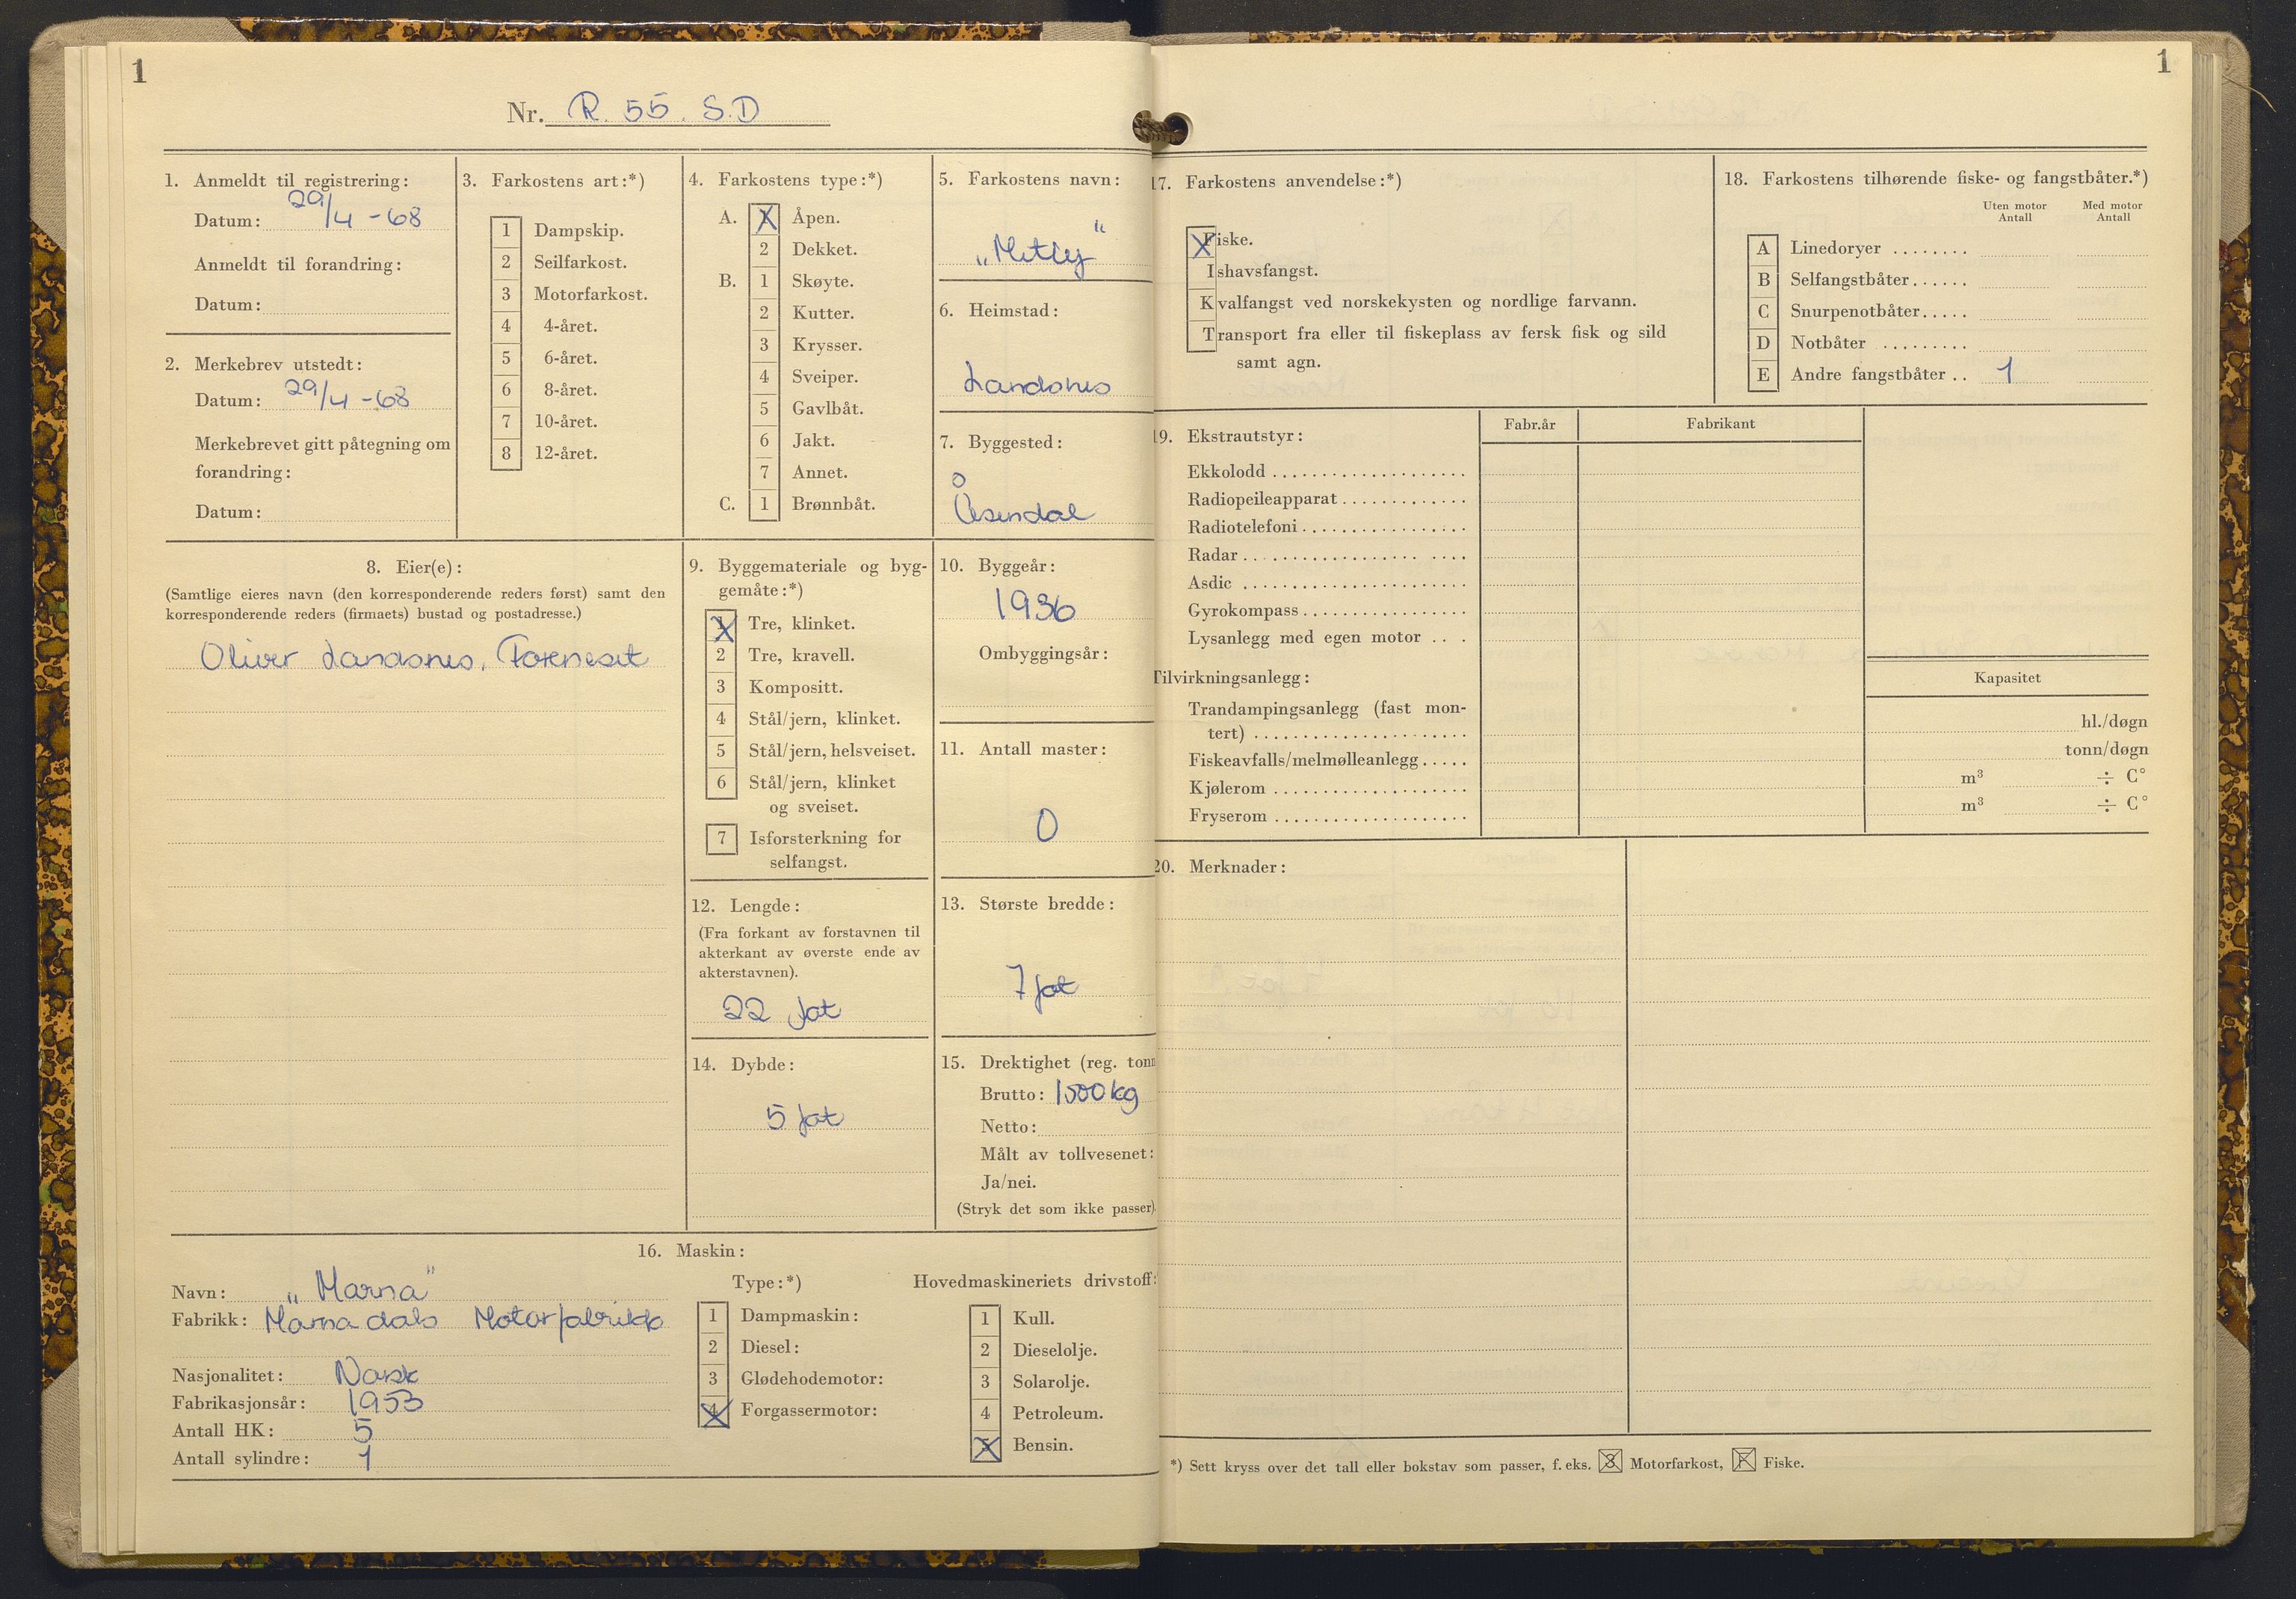 1
Nr. R. 55. S.D
1. Anmeldt til registrering:
Datum: 29/4 -68
Anmeldt til forandring:
Datum:
2. Merkebrev utstedt:
Datum: 29/4 -68
Merkebrevet gitt påtegning om
forandring:
Datum:
3. Farkostens art:*)
1 Dampskip.
2 Seilfarkost.
3 Motorfarkost.
4 4-året.
5 6-året.
6 8-året.
7 10-året.
8 12-året.
4. Farkostens type:*)
A. X Åpen.
2 Dekket.
B. 1 Skøyte.
2 Kutter.
3 Krysser.
4 Sveiper.
5 Gavlbåt.
6 Jakt.
7 Annet.
C. 1 Brønnbåt.
5. Farkostens navn:
6. Heimstad:
Landsnes
7. Byggested:
Åsendal
8. Eier(e):
(Samtlige eieres navn (den korresponderende reders først) samt den
korresponderende reders (firmaets) bustad og postadresse.)
Oliver Landsnes,
9. Byggemateriale og byg-
gemåte:*)
X Tre, klinket.
2 Tre, kravell.
3 Kompositt.
4 Stål/jern, klinket.
5 Stål/jern, helsveiset.
6 Stål/jern, klinket
og sveiset.
7 Isforsterkning for
selfangst.
10. Byggeår:
1936
Ombyggingsår:
11. Antall master:
0
12. Lengde:
(Fra forkant av forstavnen til
akterkant av øverste ende av
akterstavnen).
22 fot
13. Største bredde:
7 fot
14. Dybde:
5 fot
15. Drektighet (reg. tonn
Brutto: 1500 kg
Netto:
Målt av tollvesenet:
Ja/nei.
(Stryk det som ikke passer).
16. Maskin:
Navn: „Marna"
Fabrikk: Marnadals Motorfabrikk
Nasjonalitet: Norsk
Fabrikasjonsår: 1953
Antall HK: 5
Antall sylindre: 1
Type:*)
1 Dampmaskin:
2 Diesel:
3 Glødehodemotor:
4 Forgassermotor:
Hovedmaskineriets drivstoff:
1 Kull.
2 Dieselolje.
3 Solarolje.
4 Petroleum.
5 Bensin.
1
17. Farkostens anvendelse:*)
Fiske.
Ishavsfangst.
Kvalfangst ved norskekysten og nordlige farvann.
Transport fra eller til fiskeplass av fersk fisk og sild
samt agn.
18. Farkostens tilhørende fiske- og fangstbåter.*)
Uten motor Med motor
Antall Antall
A Linedoryer ........
B Selfangstbåter......
C Snurpenotbåter.....
D Notbåter .........
E Andre fangstbåter .. 1
19. Ekstrautstyr: Fabr.år Fabrikant
Ekkolodd ....................
Radiopeileapparat .............
Radiotelefoni .................
Radar ......................
Asdic .......................
Gyrokompass .................
Lysanlegg med egen motor ....
Tilvirkningsanlegg: Kapasitet
Trandampingsanlegg (fast mon-
tert) ...................... hl./døgn
Fiskeavfalls/melmølleanlegg ..... tonn/døgn
Kjølerom .................... m³ ÷ C°
Fryserom .................... m³ ÷ C°
20. Merknader:
*) Sett kryss over det tall eller bokstav som passer, f. eks. 3 Motorfarkost, F Fiske.